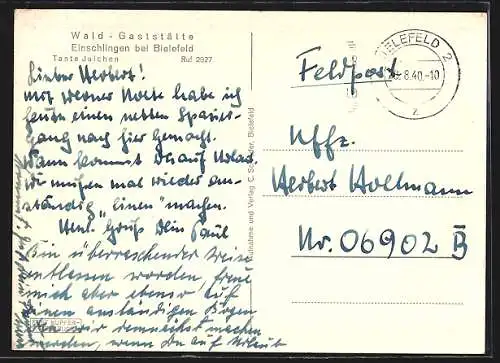 Wald - Gaststätte
Einschlingen bei Bielefeld
Tante Jelchen Ruf 2927
Lieber Herbert!
Mit Werner Nolte habe ich
heute einen netten Spazier-
gang nach hier gemacht.
Wann kommst Du auf Urlaub.
Wir müssen mal wieder an-
ständig "einen" machen.
Herzl. Gruß Dein Paul
Bin überraschender Weise
entlassen worden, freue
mich aber ebenso auf
einen anständigen Bogen
den wir demnächst machen
werden, wenn Du auf Urlaub
Aufnahme und Verlag C. Schäfer, Bielefeld
BIELEFELD 2
8.40.-10
z
Feldpost
Uffz.
Herbert Holtmann
Nr. 06902 B